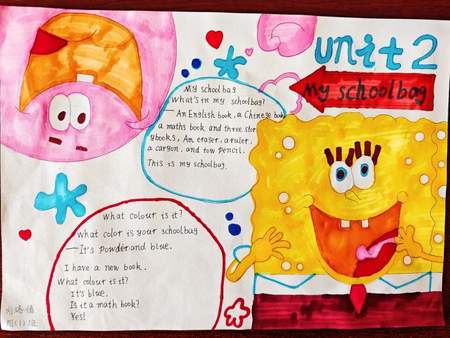 unit 2
My schoolbag
My schoolbag
What's in my schoolbag?
—An English book, a Chinese book
a maths book and three stor
ybooks, An eraser, a ruler,
a caryon, and tow pencil.
This is my schoolbag.
What colour is it?
What color is your schoolbag
—It's powder and blue.
I have a new book.
What colour is it?
It's blue.
Is it a math book?
Yes!